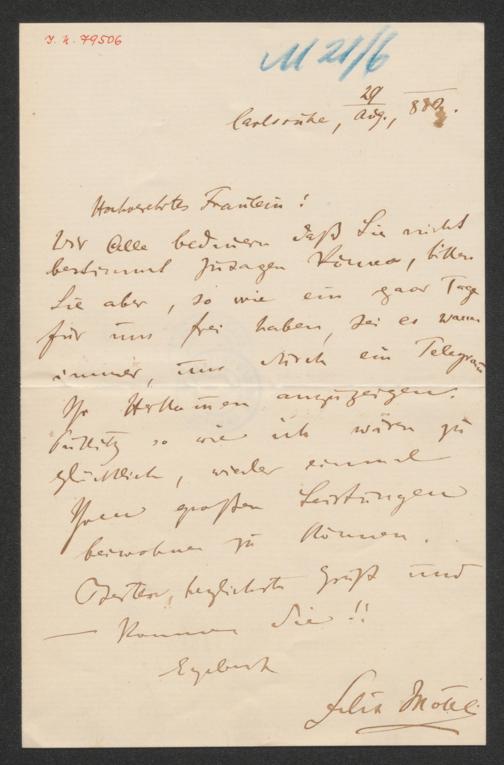 I. N. 79506
M 21/6
Carlsruhe, 29 Aug., 88
Hochverehrtes Fräulein!
Wir Alle bedauern daß Sie nicht
bestimmt zusagen können, bitten
Sie aber, so wie ein paar Tage
für uns frei haben, sei es wann
immer, uns durch ein Telegram
Ihr Herkommen anzuzeigen.
Putlitz so wie ich wären zu
glücklich, wieder einmal
Ihren großen Leistungen
beiwohnen zu können.
Besten, herzlichsten Gruß und
— kommen Sie!!
Ergebenst
Felix Mottl